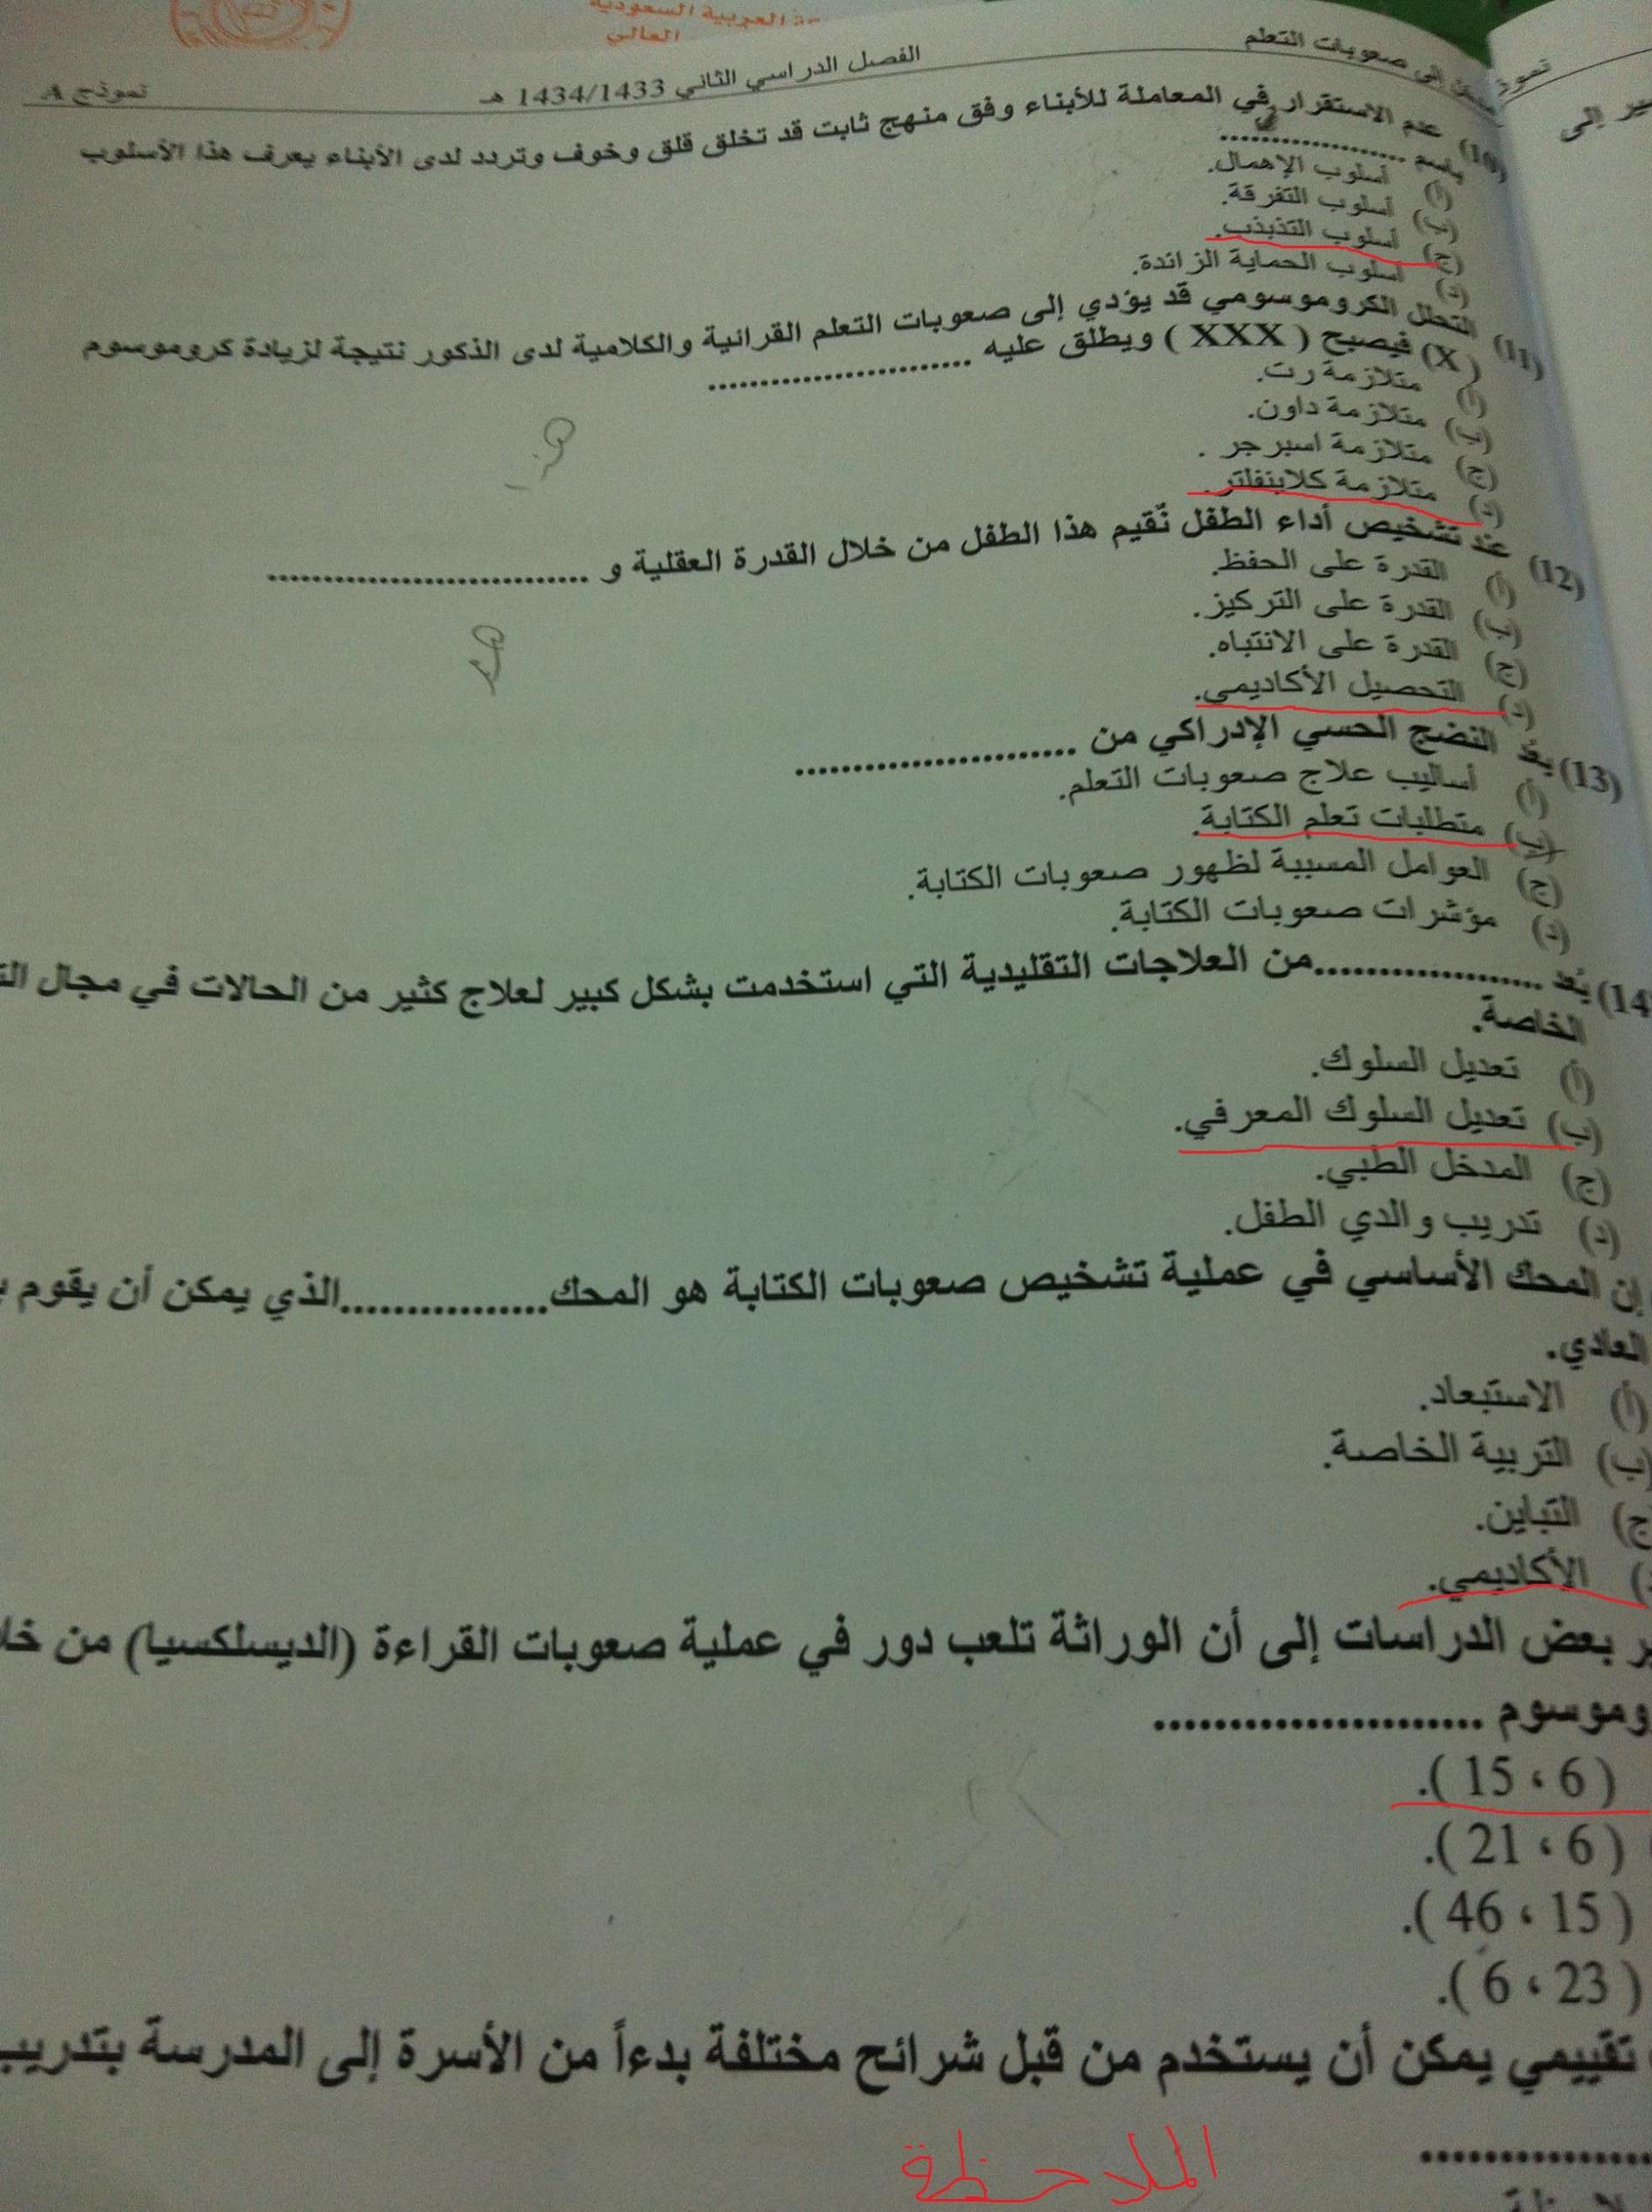 العربية السعودية
العالي
صعوبات التعلم
الفصل الدراسي الثاني 1434/1433 هـ
نموذج A
(10) عدم الاستقرار في المعاملة للأبناء وفق منهج ثابت قد تخلق قلق وخوف وتردد لدى الأبناء يعرف هذا الأسلوب
باسم ....................
(أ) أسلوب الإهمال.
(ب) أسلوب التفرقة.
(ج) أسلوب التذبذب.
(د) أسلوب الحماية الزائدة.
(11) الكروموسومي قد يؤدي إلى صعوبات التعلم القرائية والكلامية لدى الذكور نتيجة لزيادة كروموسوم
(X) فيصبح ( XXX ) ويطلق عليه ........................
(أ) متلازمة رت.
(ب) متلازمة داون.
(ج) متلازمة اسبرجر .
(د) متلازمة كلاينفلتر.
(12) عند تشخيص أداء الطفل نُقيم هذا الطفل من خلال القدرة العقلية و ............................
(أ) القدرة على الحفظ.
(ب) القدرة على التركيز.
(ج) القدرة على الانتباه.
(د) التحصيل الأكاديمي.
(13) يعد النضج الحسي الإدراكي من ........................
(أ) أساليب علاج صعوبات التعلم.
(ب) متطلبات تعلم الكتابة.
(ج) العوامل المسببة لظهور صعوبات الكتابة.
(د) مؤشرات صعوبات الكتابة.
(14 يُعد ....................من العلاجات التقليدية التي استخدمت بشكل كبير لعلاج كثير من الحالات في مجال
الخاصة.
(أ) تعديل السلوك.
(ب) تعديل السلوك المعرفي.
(ج) المدخل الطبي.
(د) تدريب والدي الطفل.
إن المحك الأساسي في عملية تشخيص صعوبات الكتابة هو المحك................الذي يمكن أن يقوم
العادي.
(أ) الاستبعاد.
(ب) التربية الخاصة.
(ج) التباين.
الأكاديمي.
بعض الدراسات إلى أن الوراثة تلعب دور في عملية صعوبات القراءة (الديسلكسيا) من
وموسوم ......................
( 6 ، 15 ).
( 6 ، 21 ).
( 15 ، 46 ).
( 23 ، 6 ).
تقييمي يمكن أن يستخدم من قبل شرائح مختلفة بدءاً من الأسرة إلى المدرسة
................
الملاحظة